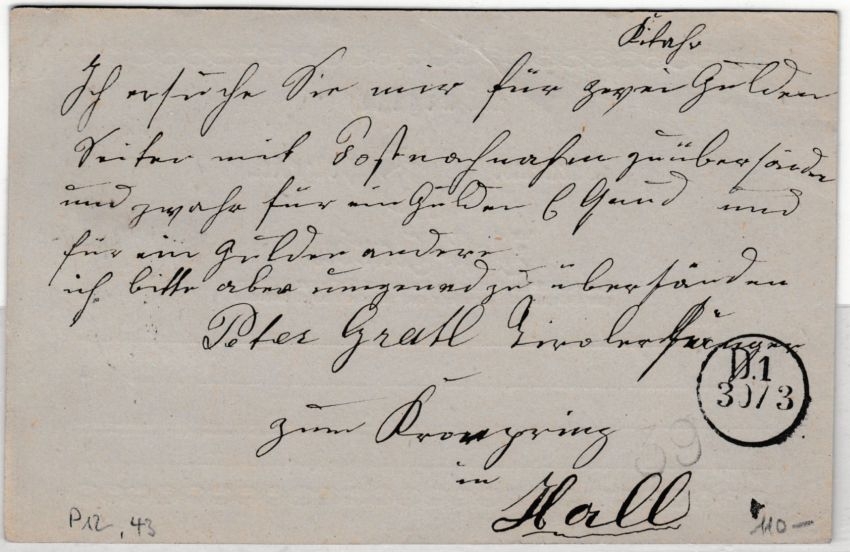 Kitahr
Ich ersuche Sie mir für zwei Gulden
Seiten mit Postnachnahm zu übersänden
und zwahr für ein Gulden E und
für ein Gulden andere
ich bitte aber umgened zu übersänden
Peter Gratl Tirolersänger
zum Kronprinz
in
Hall
D.1
30/3
39
P12, 43
110–